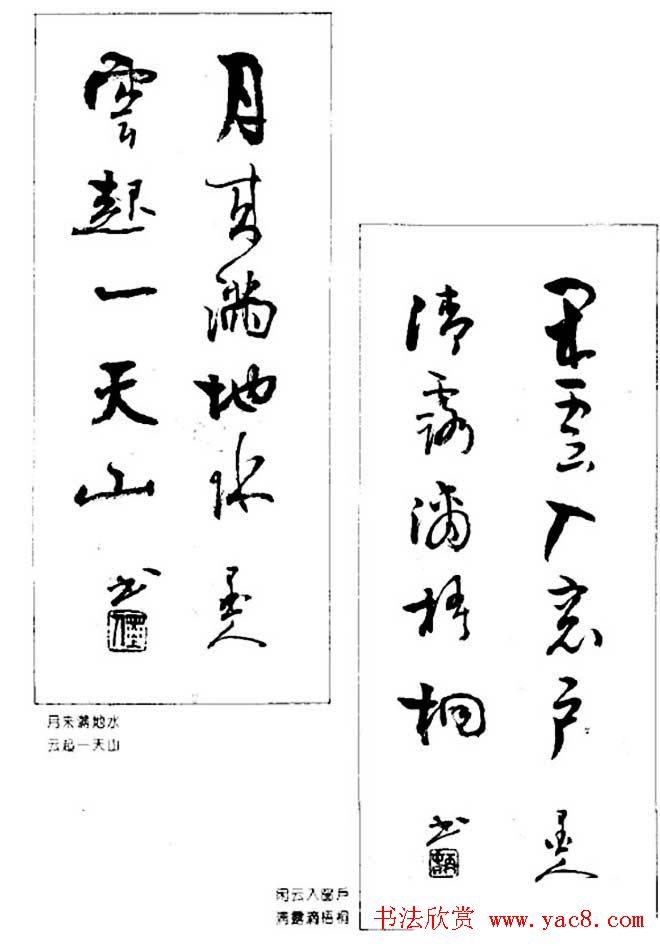 月来滿地水 墨人
雲起一天山 书
月来满地水
云起一天山
闲雲入窓户 墨人
清露滴梧桐 书
闲云入窗户
清露滴梧桐
书法欣赏 www.yac8.com